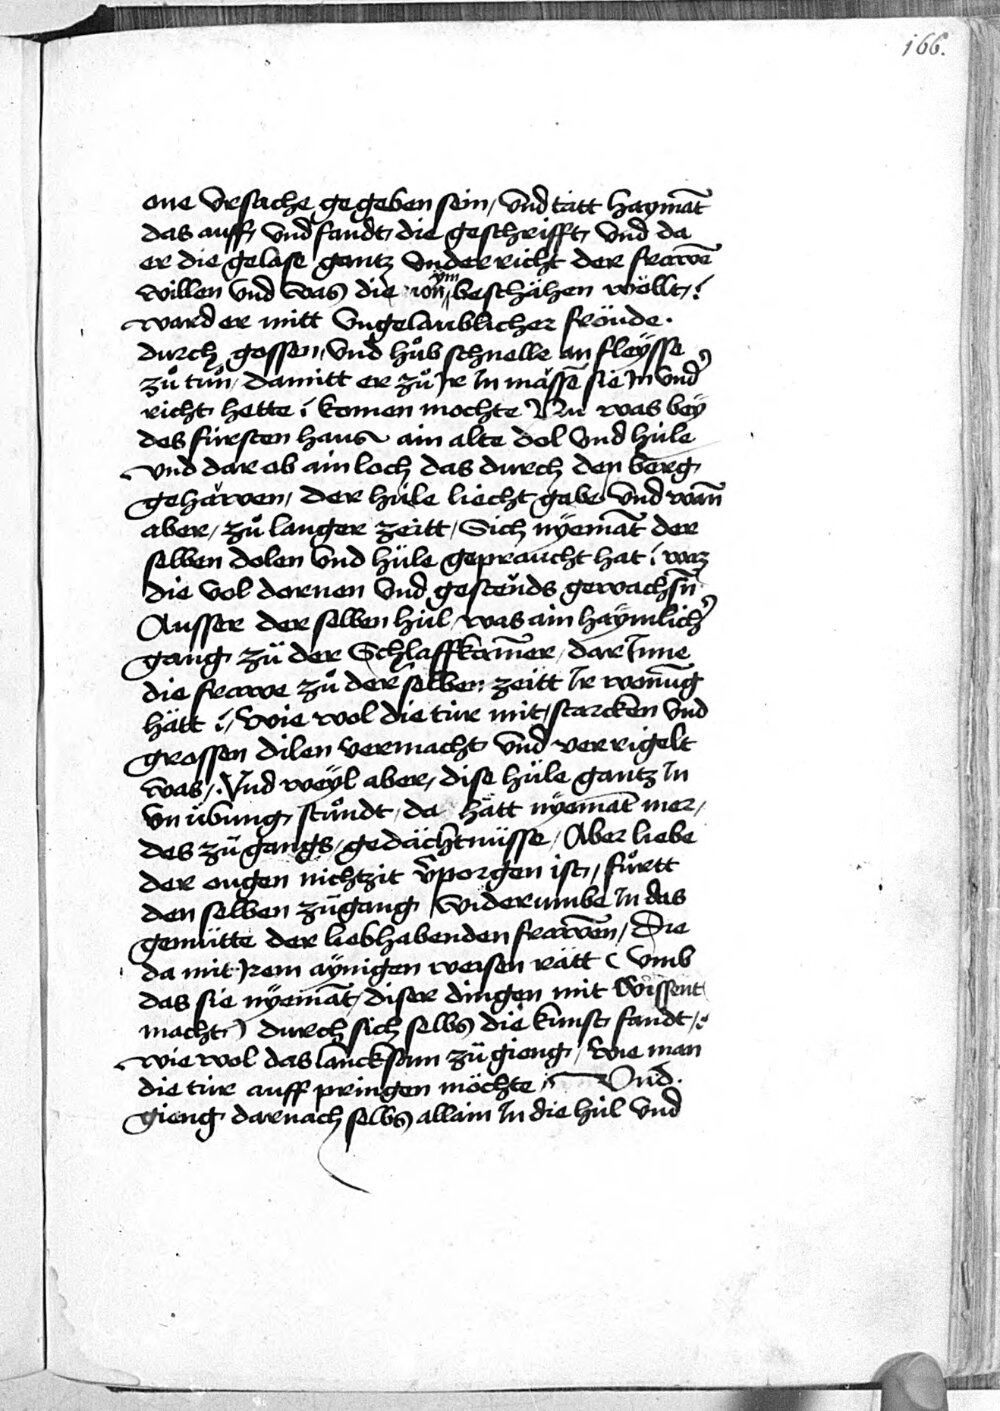 166.
one vrsache gegeben sein / vnd tätt haymāt
das auff vnd fandt die geschrifft / vnd da
er die gelase gantz vnderricht der frawē
willen vnd was die von ym beschähen wöllt /
ward er mitt vngelaublicher fröude .
durch gossen / vnd hůb schnelle an fleÿsse
zů tůn / damitt er zů Jr In mässē sie In vnd᷑
richt hette / komen mochte Nu was beÿ
des fürsten haus ain alte dol vnd hüle
vnd dar ob ain loch das durch den berg
gehäwen / der hüle liecht gabe vnd wān
aber / zů langer zeitt / Sich nÿemāt der
selben dolen vnd hüle gepraucht hat / waz
die vol dornen vnd gesteüds gewachsn̄
Ausser der selben hül / was ain haÿmlich᷑
gang zů der Schlaffkam̄er / dar Inne
die frawe zů der selben zeitt Ir wonūg
hätt / wie wol die tür mit starcken vnd
grossen dilen vermacht vnd verrigelt
was / Vnd weÿl aber / dise hüle gantz In
vnübung stůndt / da hätt nÿemāt mer /
des zůgangs / gedächtnüsse / Aber liebe
der ougen nichtzit v᷑porgen ist / fůrtt
den selben zůgang widerumbe In das
gemütte der liebhabenden frawēn / Die
da mit Jrem aÿnigen weisen rätt ( vmb
das sie nÿemāt / diser dingen mit wissent
macht ) durch sich selbs die kunst fandt /
wie wol das lancksam zů gieng / wie man
die tür auff pringen möchte / Vnd .
gieng darnach selbs allain In die hül vnd